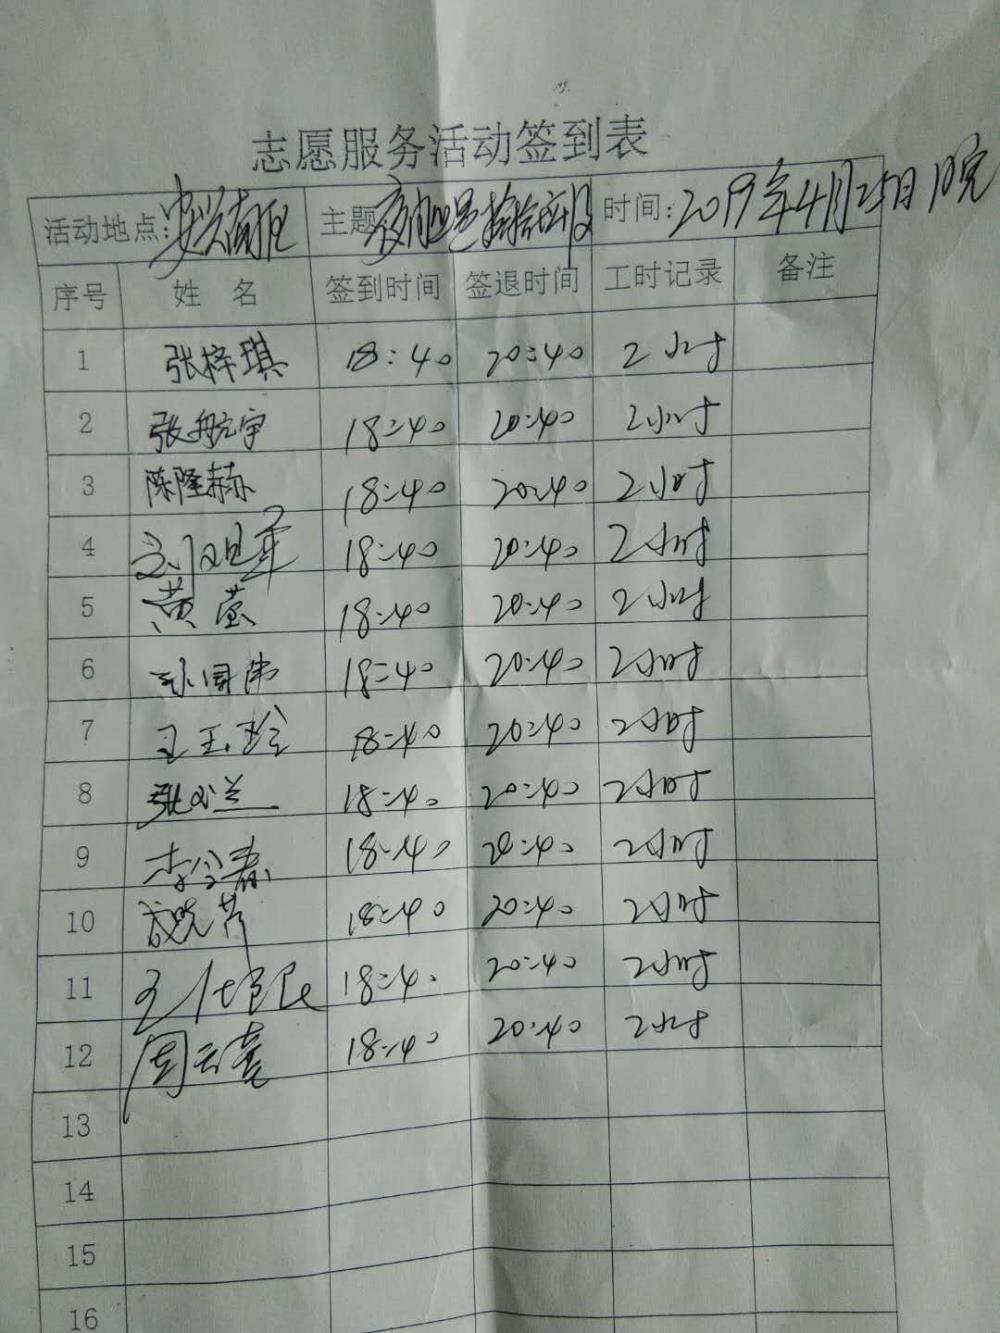 志愿服务活动签到表
活动地点:安兴南区 主题 时间:2019年4月25日
序号 姓 名 签到时间 签退时间 工时记录 备注
1 张梓琪 18:40 20:40 2小时
2 张航宇 18:40 20:40 2小时
3 陈隆赫 18:40 20:40 2小时
4 18:40 20:40 2小时
5 黄莹 18:40 20:40 2小时
6 孙国伟 18:40 20:40 2小时
7 王玉珍 18:40 20:40 2小时
8 张小兰 18:40 20:40 2小时
9 18:40 20:40 2小时
10 18:40 20:40 2小时
11 18:40 20:40 2小时
12 周云喜 18:40 20:40 2小时
13
14
15
16